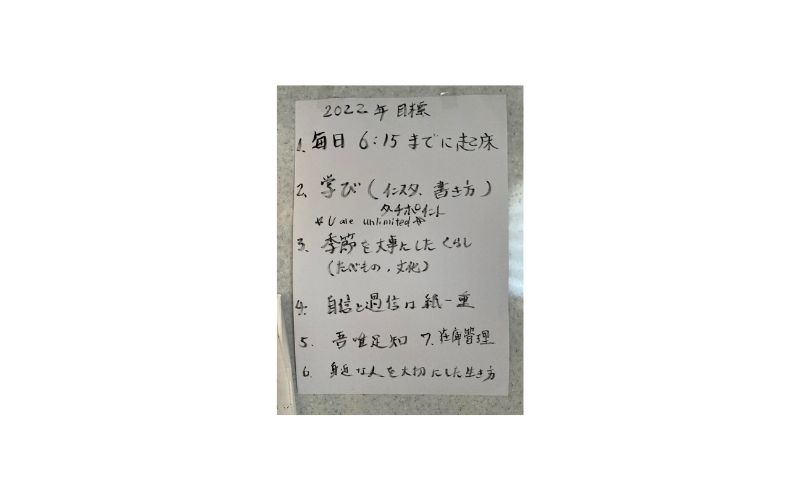 2022年 目標
1. 毎日 6:15 までに起床
2. 学び(インスタ、書き方)
タッチポイント
☆U are unlimited☆
3. 季節を大事にしたくらし
(たべもの、文化)
4. 自信と過信は紙一重
5. 吾唯足知 7. 在庫管理
6. 身近な人を大切にした生き方